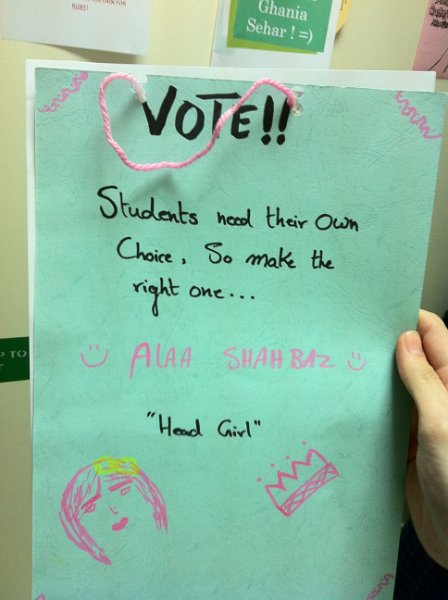 Ghania
Sehar ! =)
VOTE!!
Students need their Own
Choice, So make the
right one...
ALAA SHAHBAZ
"Head Girl"
TO